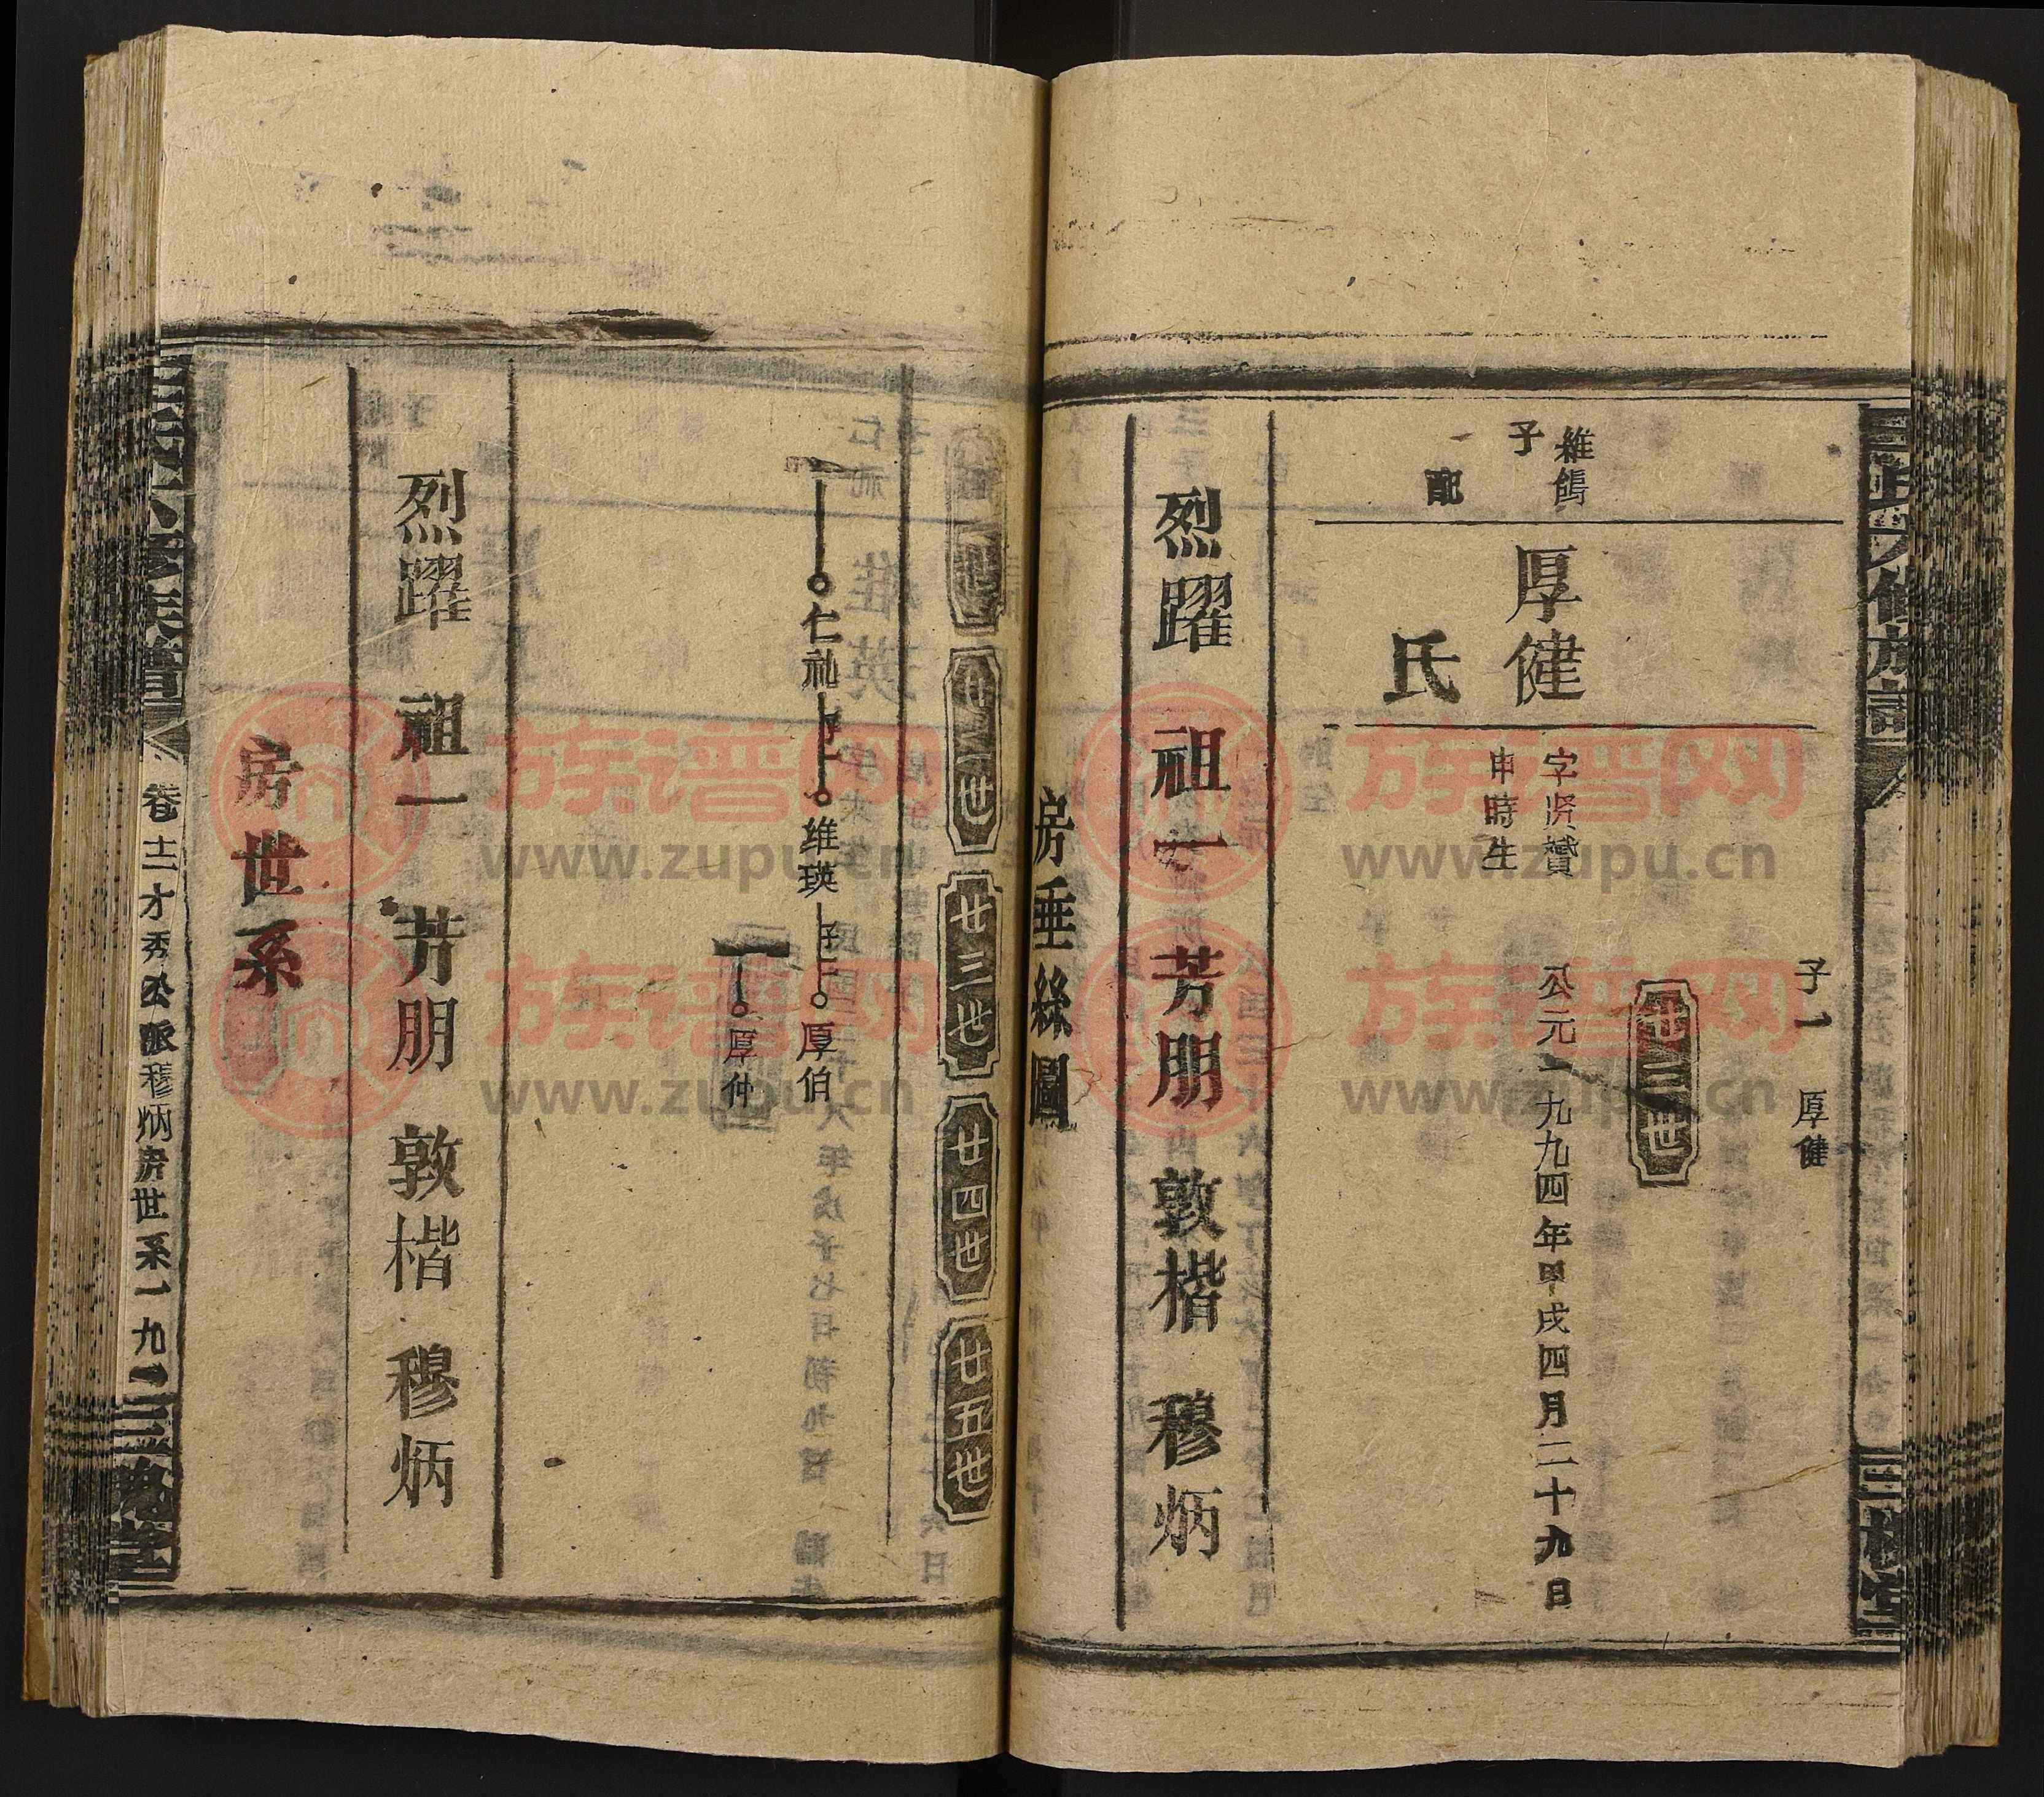 子一 厚健
廿三世
維鴿
子
厚健
字贤贊 公元一九九四年甲戌四月二十九日
申時生
一配
氏
烈躍 祖一 芳朋 敦楷 穆炳
房垂絲圖
廿二世 廿三世 廿四世 廿五世
仁祂 子一 维瑛 子二 厚伯
厚仲
烈躍 祖一 芳朋 敦楷 穆炳
房世系
卷十二才秀公派穆炳房世系一九二
族譜网
www.zupu.cn
族譜网
www.zupu.cn
族譜网
www.zupu.cn
族譜网
www.zupu.cn